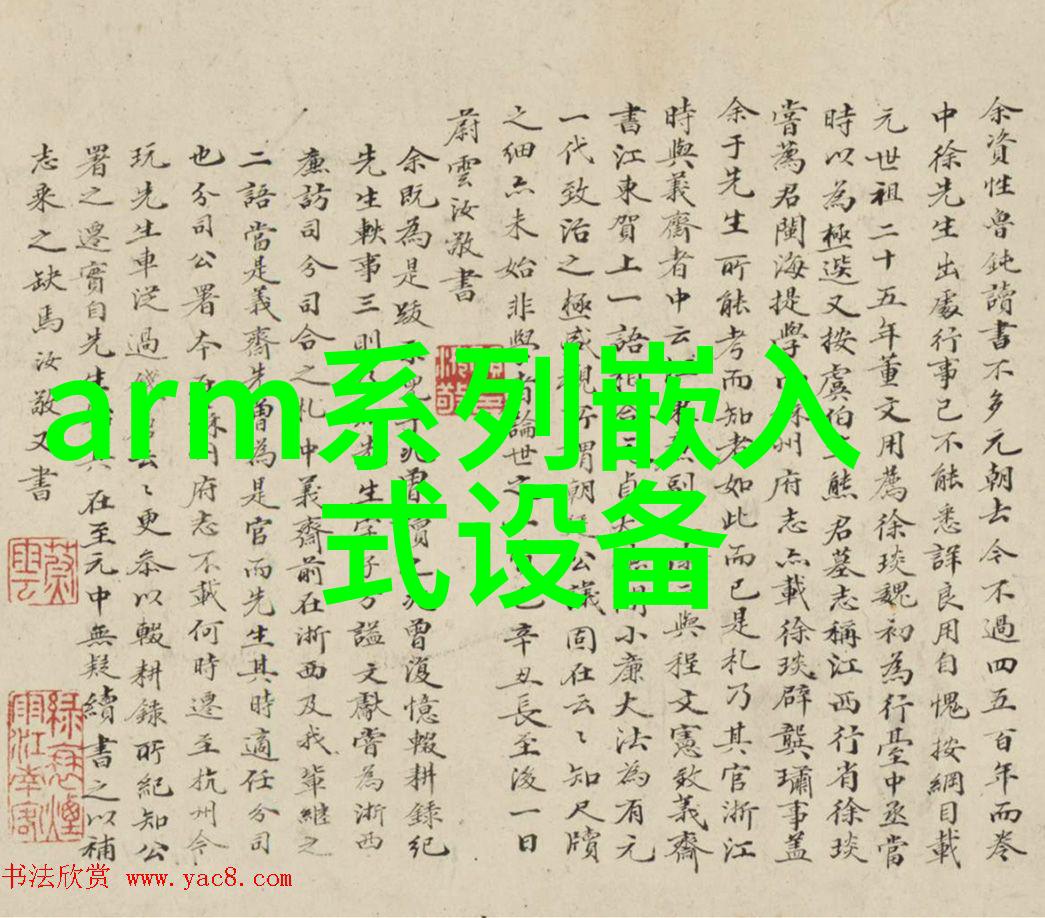 余資性魯鈍讀書不多元朝去今不過四五百年而卷
中徐先生出處行事已不能悉詳良用自愧按綱目載
元世祖二十五年董文用薦徐琰魏初為行臺中丞當
時以為極選又按虞伯熊君墓志稱江西行省徐琰
嘗薦君閩海提學州府志亦載徐琰辟龔璛事蓋
余于先生所能考而知者如此而已是札乃其官浙江
時與義齋者中云副與程文憲效義齋
書江東賀上一語貞小廉大法為有元
一代致治之極盛觀所謂朝公議固在云〻知尺牘
之細亦未始非學者論世之辛丑長至後一日
蔚雲汝敬書
余既為是跋曾讀曾復憶輟耕錄紀
先生軼事三則先生字子方謚文獻嘗為浙西
廉訪司分司合之札中義齋前在浙西及我輩繼之
二語當是義齋先曾為是官而先生其時適任分司
也分司公署本在蘇州府志不載何時遷至杭州今
玩先生車從過云〻更參以輟耕錄所紀知公
署之遷實自先生其在至元中無疑續書之以補
志乘之缺馬汝敬又書
arm系列嵌入
式设备
书法欣赏 www.yac8.com